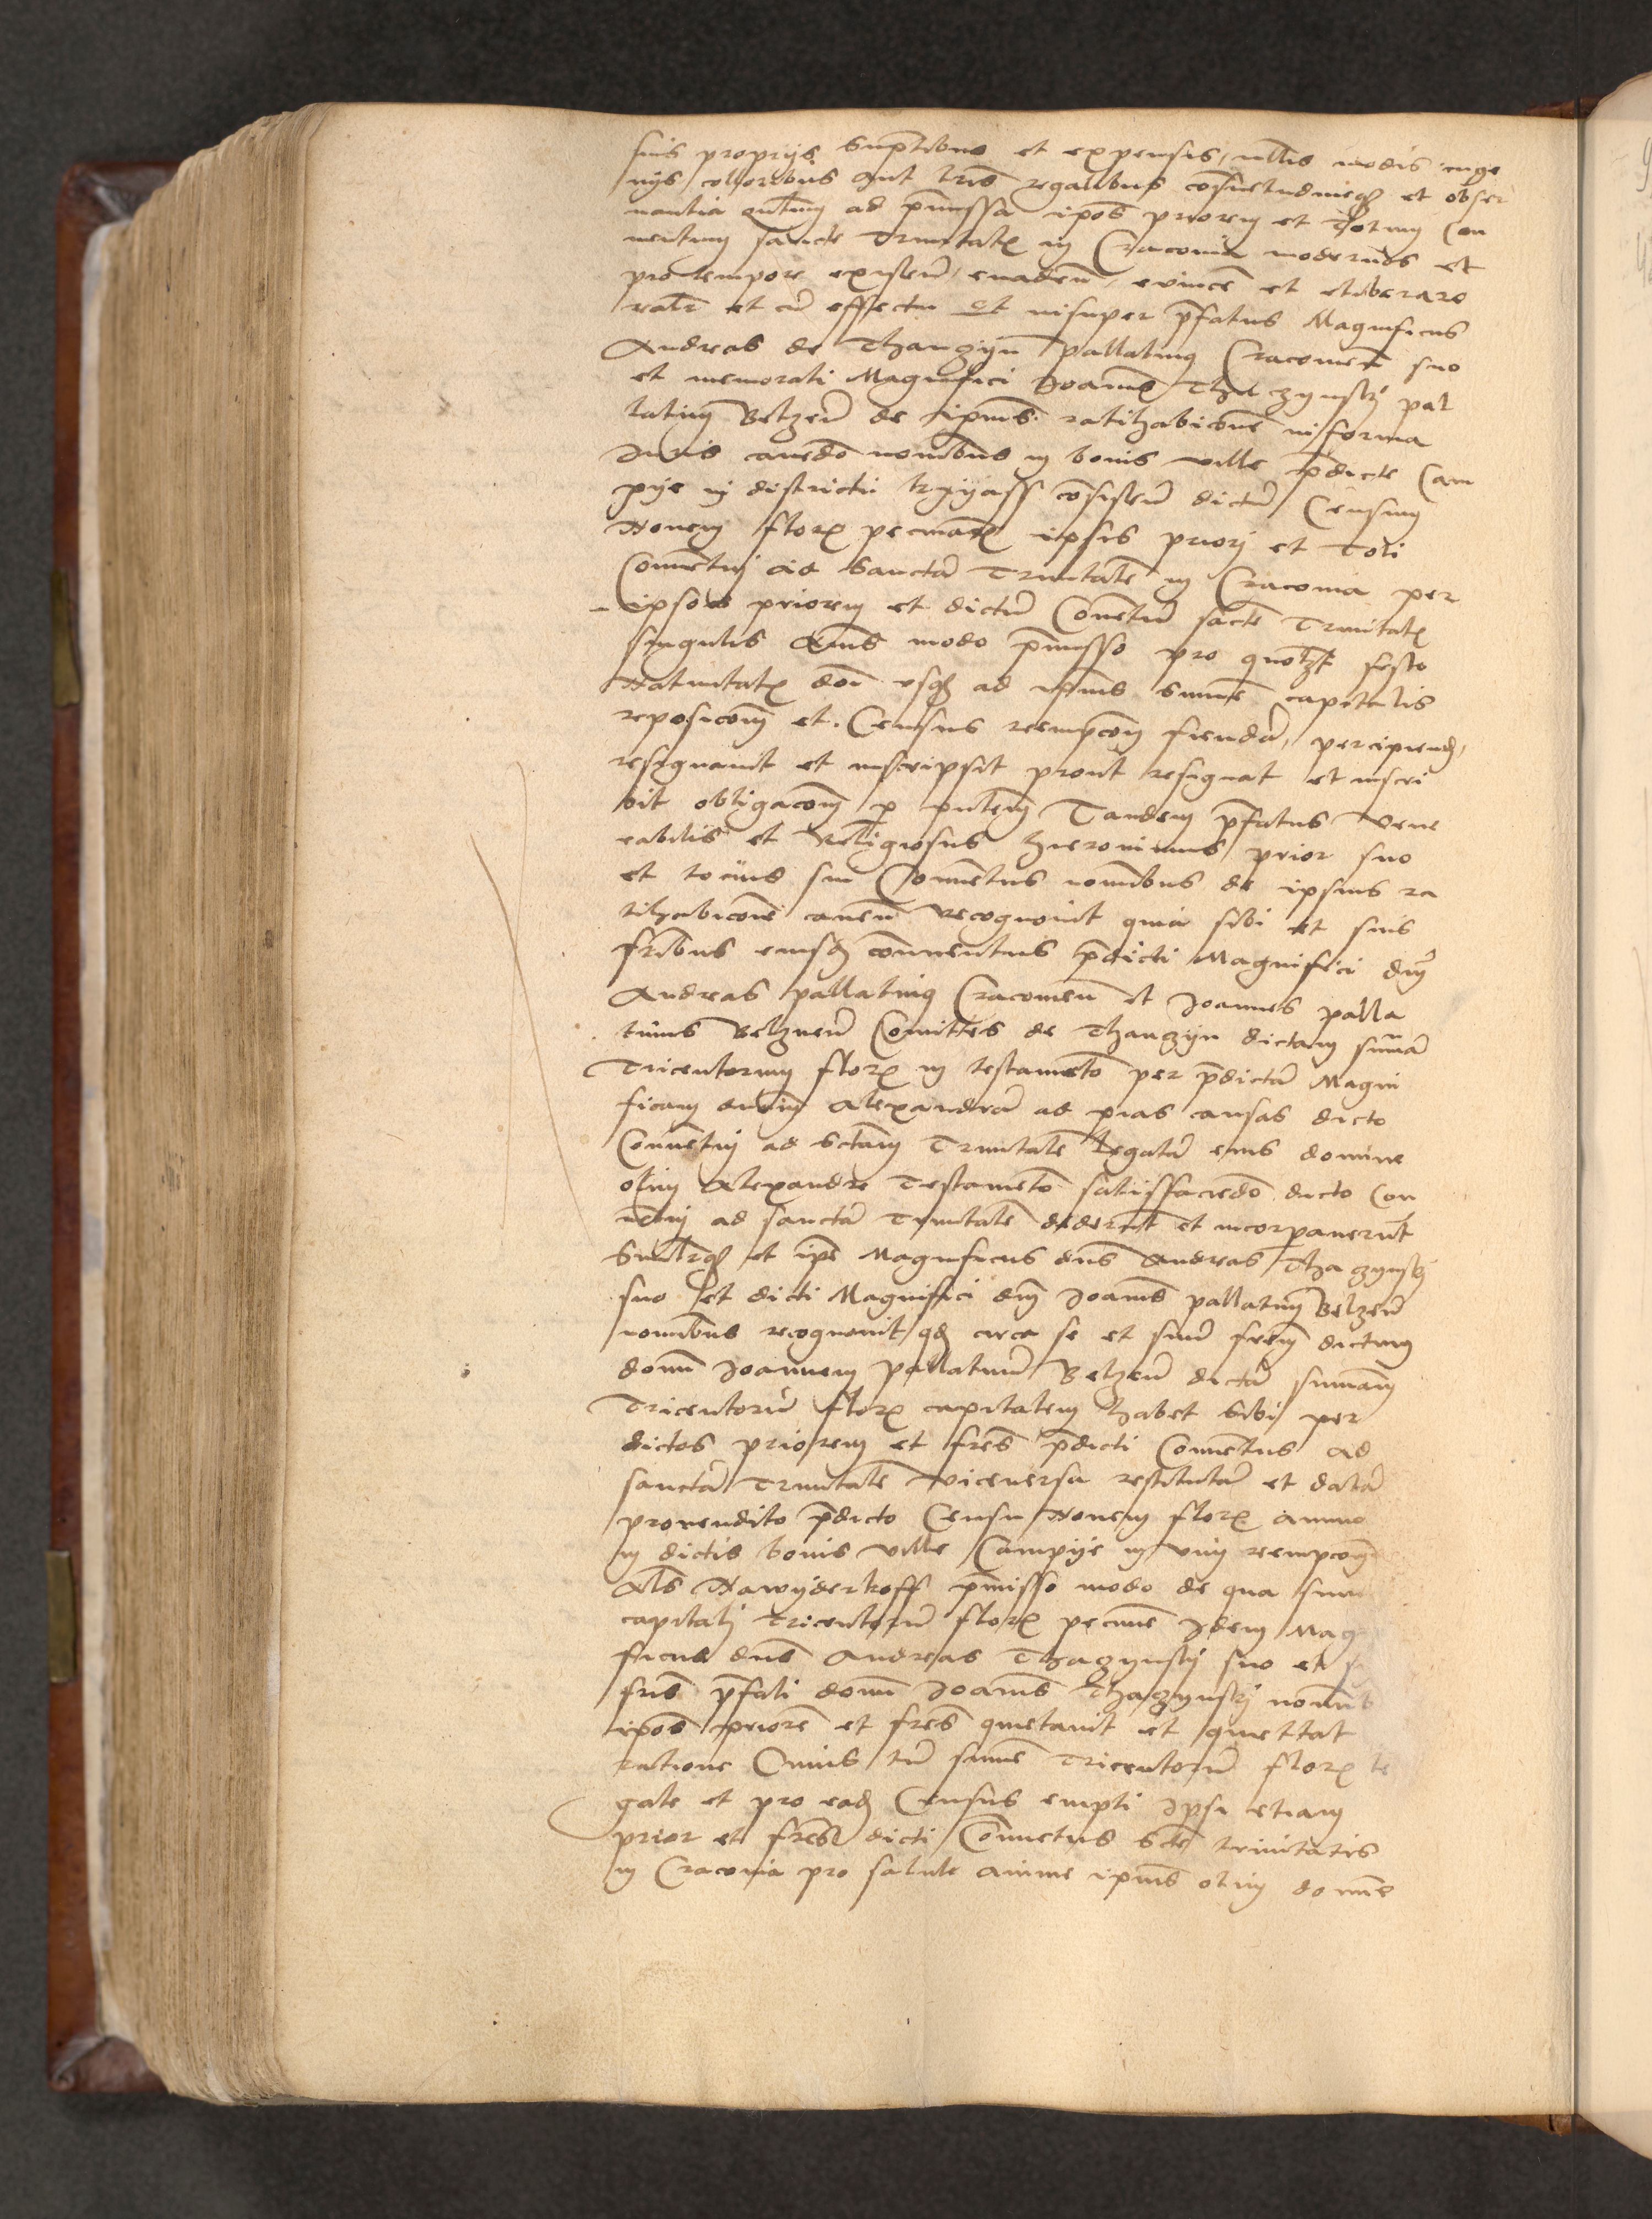 suis proprijs sumptibus et expensis, ullis modis inge
nijs coloribus aut lris regalibus consuetudineq et obser
uantia ad pmissa ipos priorem et totum Con
uentum sancte Trinitatis in Cracouia modernos et
pro tempore existen, euaden, euincen et liberare
realr et cu effectu Et insuper pfatus Magnificus
Andreas de Thanczyn Pallatinus Cracouien suo
et memorati Magnifici Joannis Thaczynskj pal
latini Belzen de ipius ratihabicione in forma
Juris cauendo nominibus in bonis ville pdicte Cam
pije in districtu consisten dictum Censum
Nouem flor pecuniar ipsis priorj et Toti
Conuentuj ad Sancta Trinitate in Cracouia per
ipsos priorem et dictu Conuentu sacte Trinitat
singulis Annis modo pmisso pro quolzt festo
Natiuitat doi vsq ad ipius summe capitalis
reposicom et Census reempcom fienda, percipiend,
resignauit et inscripsit prout resignat et inscri
bit obligacom p pntem Tandem pfatus Vene
rabilis et Religiosus Hieronimus prior suo
et tocius sui Conuentus nominibus de ipsius ra
tihabicione cauen Recognouit quia sibi et suis
fribus eiusd conuentus pdicti Magnifici dnj
Andreas Pallatinus Cracouien et Joannes palla
tinus Belznen Comittes de Thanczyn dictam summa
Tricentorum flor in testamento per pdicta Magni
ficam dnam Alexandra ad pias causas dicto
Conuentuj ad Sctam Trinitate Legata eius domine
olim Alexandre Testamento satisfaciendo dicto Con
uentuj ad sancta Trinitate dederunt et incorpauerut
Similrq et ipe Magnificus dns Andreas Thaczynskj
suo et dicti Magnifici dnj Joanis pallatinj Belzen
nominibus recognouit qd circa se et suu frem dictum
domi Joannem Pallatinu Belzen dicta summam
Tricentoru flor capitalem habet sibi per
dictos priorem et fres pdicti Conuentus ad
sancta Trinitate Viceuersa restituta et data
pro vendito pdicto Censu Nouem flor annuo
in dictis bonis ville Campije in vim reempcom
Als Nawyderkoff pmisso modo de qua sum
capitalj Tricentoru flor pecunie Idem Mag
ficus dns Andreas Thaczynskj suo et
fris pfati domi Joanis Thaczynskj nomib
ipos priore et fres quietauit et quiettat
ratione Cuius tm summe Tricentoru flor le
gate et pro ead Census empti Ipsi etiam
prior et fres dicti Conuentus Scte trinitatis
in Cracouia pro salute anime ipius olim domine